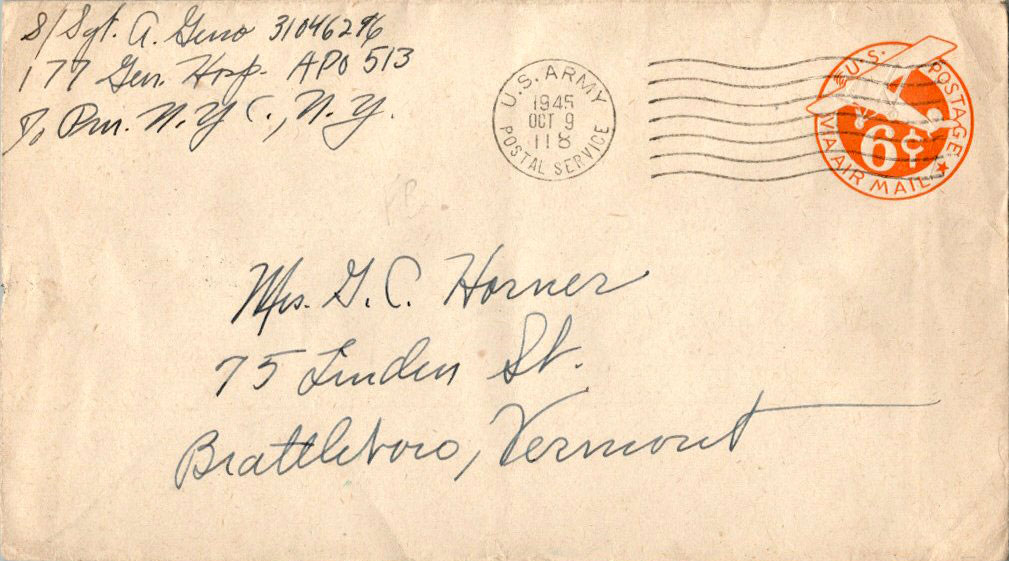 S/Sgt. A. Geno 31046296
177 Gen. Hosp. APO 513
℅ Pm. N.Y.C., N.Y.
U.S. ARMY
1945
OCT 9
118
POSTAL SERVICE
U.S. POSTAGE
6¢
VIA AIR MAIL
Mrs. G. C. Horner
75 Linden St.
Brattleboro, Vermont